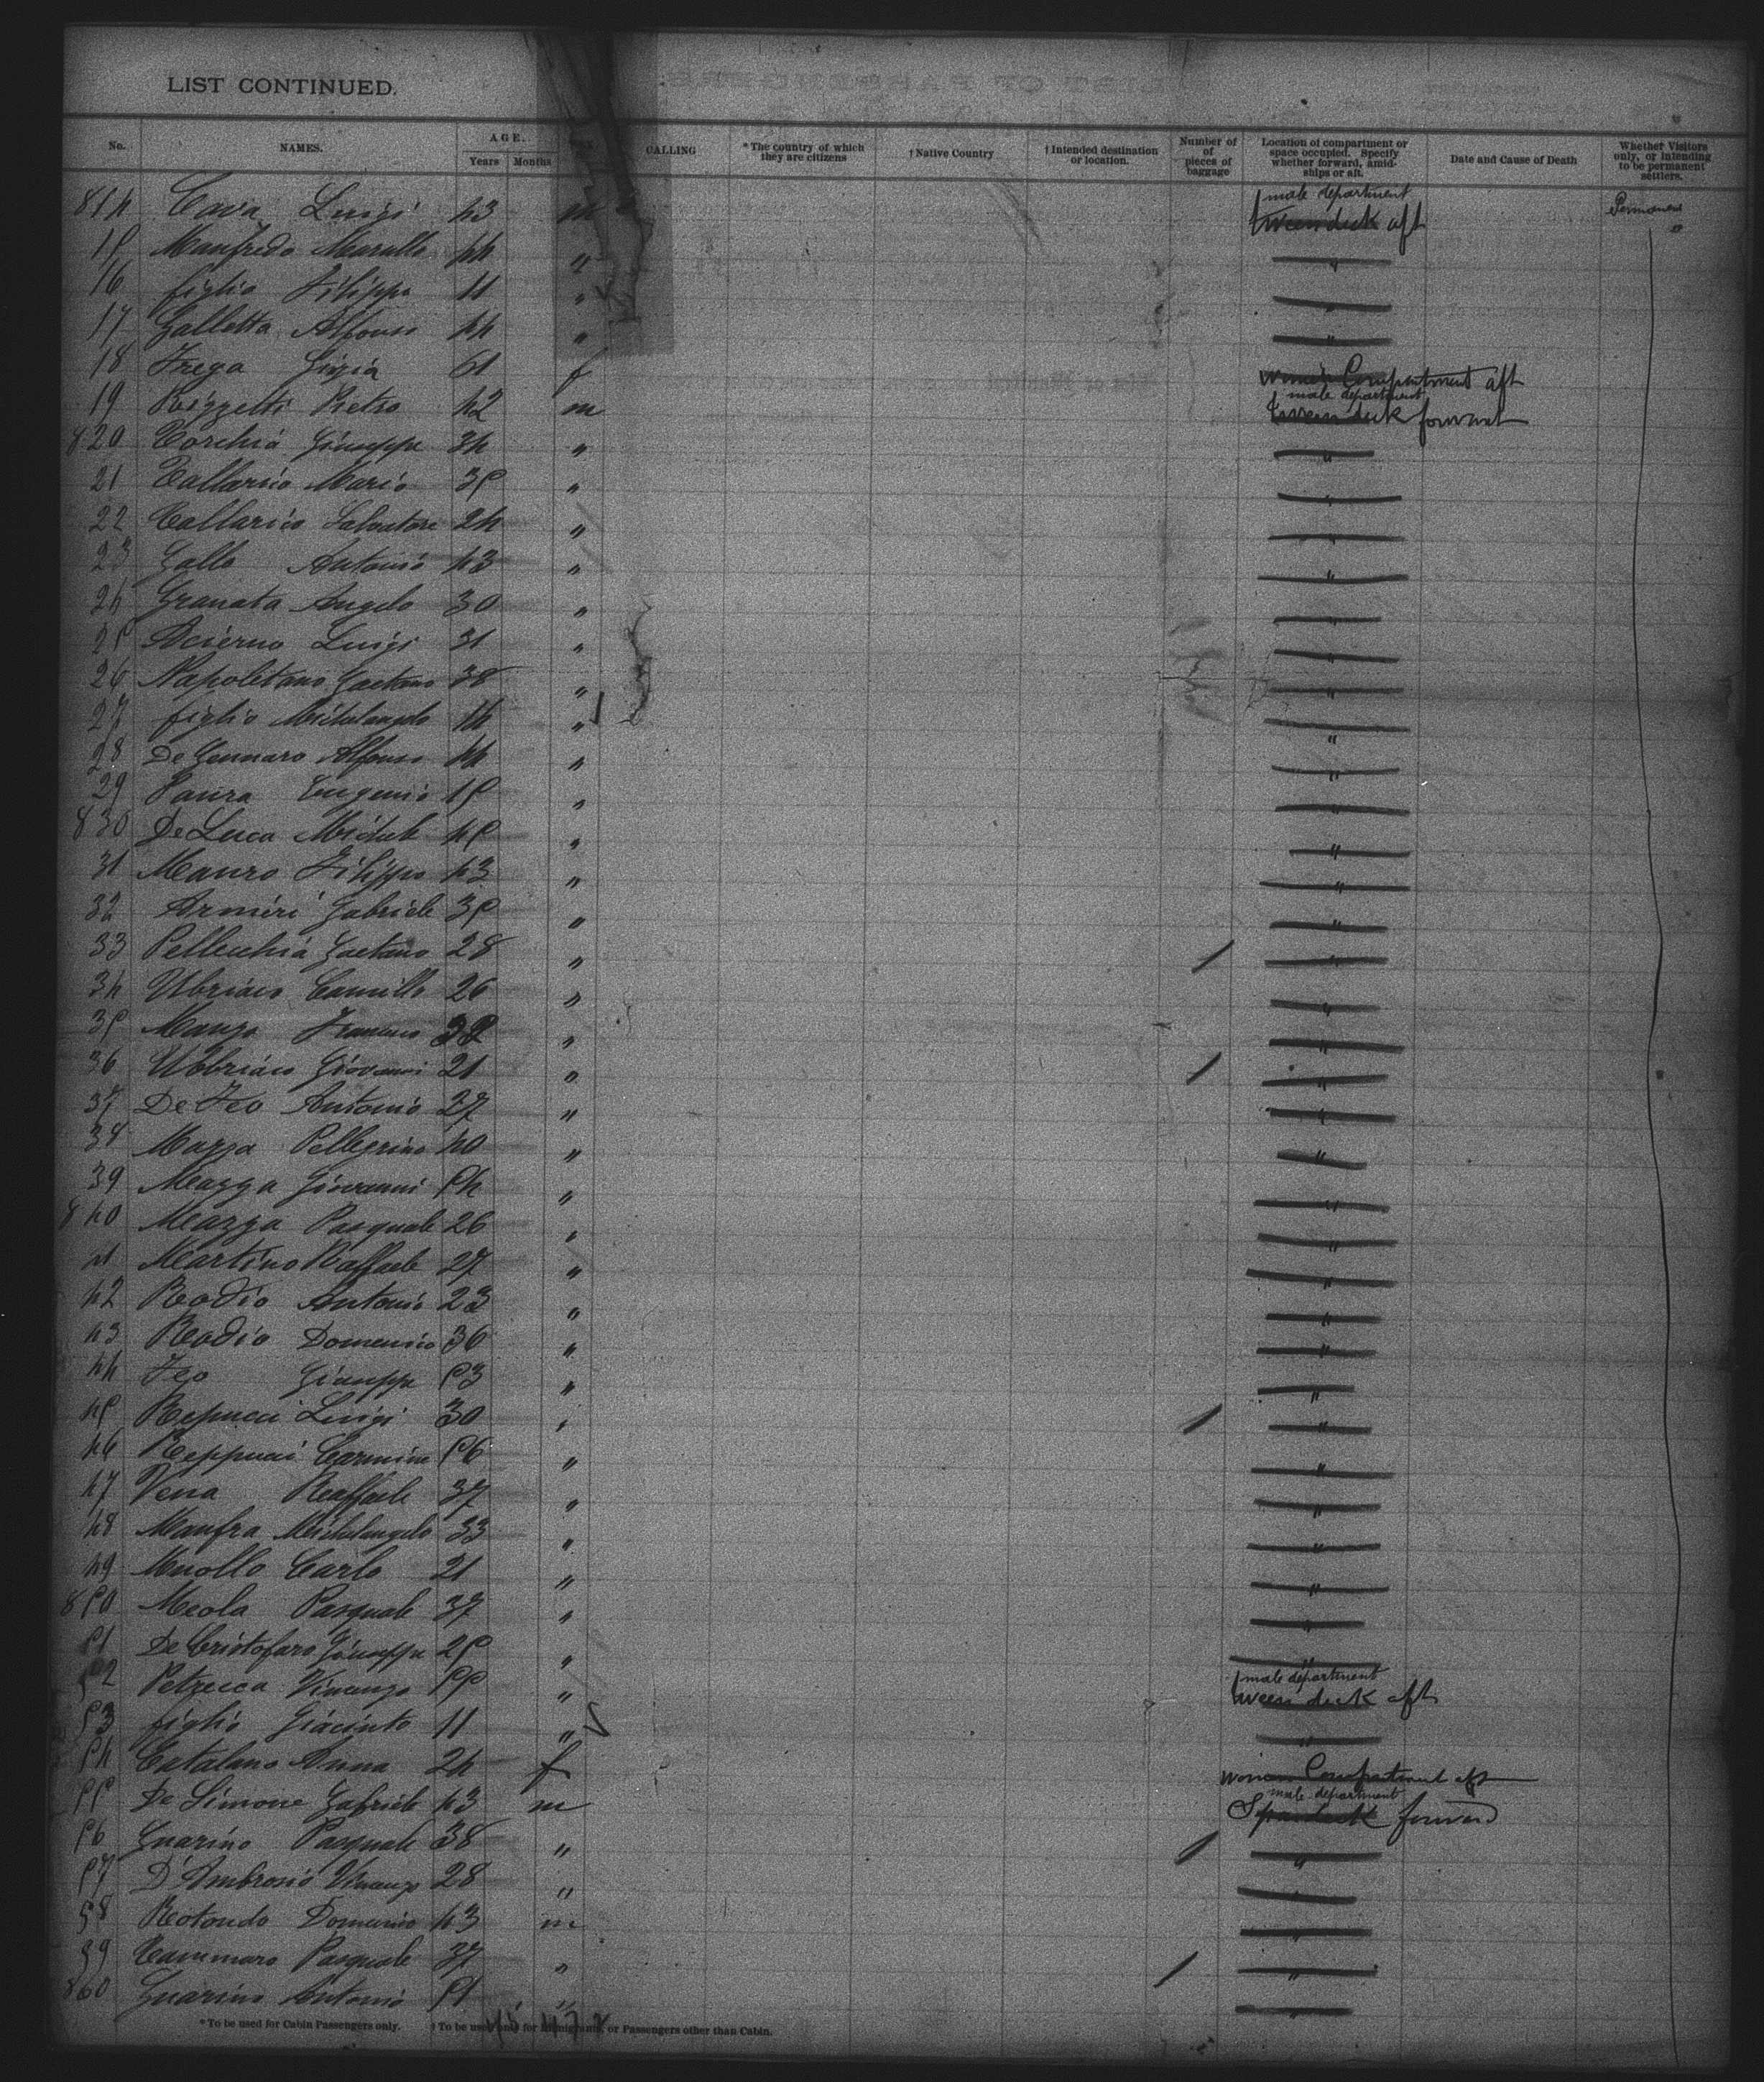 LIST CONTINUED.
No. NAMES. AGE. Years Months CALLING * The country of which they are citizens † Native Country † Intended destination or location. Number of of pieces of baggage Location of compartment or space occupied. Specify whether forward, amidships or aft. Date and Cause of Death Whether Visitors only, or intending to be permanent settlers.
814 Cava Luigi 43 m male department tween deck aft Permanent
15 Manfredo Marullo 44 " " "
16 figlio Filippo 11 " "
17 Galletta Alfonso 44 " "
18 Frega Gizia 61 f women Compartment aft
19 Rizzetti Pietro 42 m male department tween deck forward
820 Torchia Giuseppe 34 " "
21 Tallarico Mario 35 " "
22 Tallarico Salvatore 24 " "
23 Gallo Antonio 43 " "
24 Granata Angelo 30 " "
25 Acierno Luigi 31 " "
26 Napoletano Gaetano 38 " "
27 figlio Michelangelo 14 " "
28 De Gennaro Alfonso 44 " "
29 Paura Eugenio 15 " "
830 De Luca Michele 45 " "
31 Mauro Filippo 43 " "
32 Armieri Gabriele 35 " "
33 Pellecchia Gaetano 28 " "
34 Ubriaco Camillo 26 " "
35 Manzo Francesco " "
36 Ubbriaco Giovanni 21 " "
37 De Feo Antonio 27 " "
38 Mazza Pellegrino 40 " "
39 Mazza Giovanni 54 " "
840 Mazza Pasquale 26 " "
41 Martino Raffaele 27 " "
42 Rodio Antonio 23 " "
43 Rodio Domenico 36 " "
44 Feo Giuseppe 53 " "
45 Repucci Luigi 30 " "
46 Reppucci Carmine 56 " "
47 Vena Raffaele 37 " "
48 Manfra Michelangelo 33 " "
49 Muollo Carlo 21 " "
850 Meola Pasquale 37 " "
51 De Cristofaro Giuseppe 25 " "
52 Petrecca Vincenzo 55 " male department tween deck aft
53 figlio Giacinto 11 " "
54 Catalano Anna 24 f women Compartment aft
55 De Simone Gabriele 43 m male department Spardeck forward
56 Guarino Pasquale 38 " "
57 D'Ambrosio Vincenzo 28 " "
58 Rotondo Domenico 43 m "
59 Tammaro Pasquale 37 " "
860 Guarino Antonio 51 " "
* To be used for Cabin Passengers only. † To be used only for Immigrants, or Passengers other than Cabin.